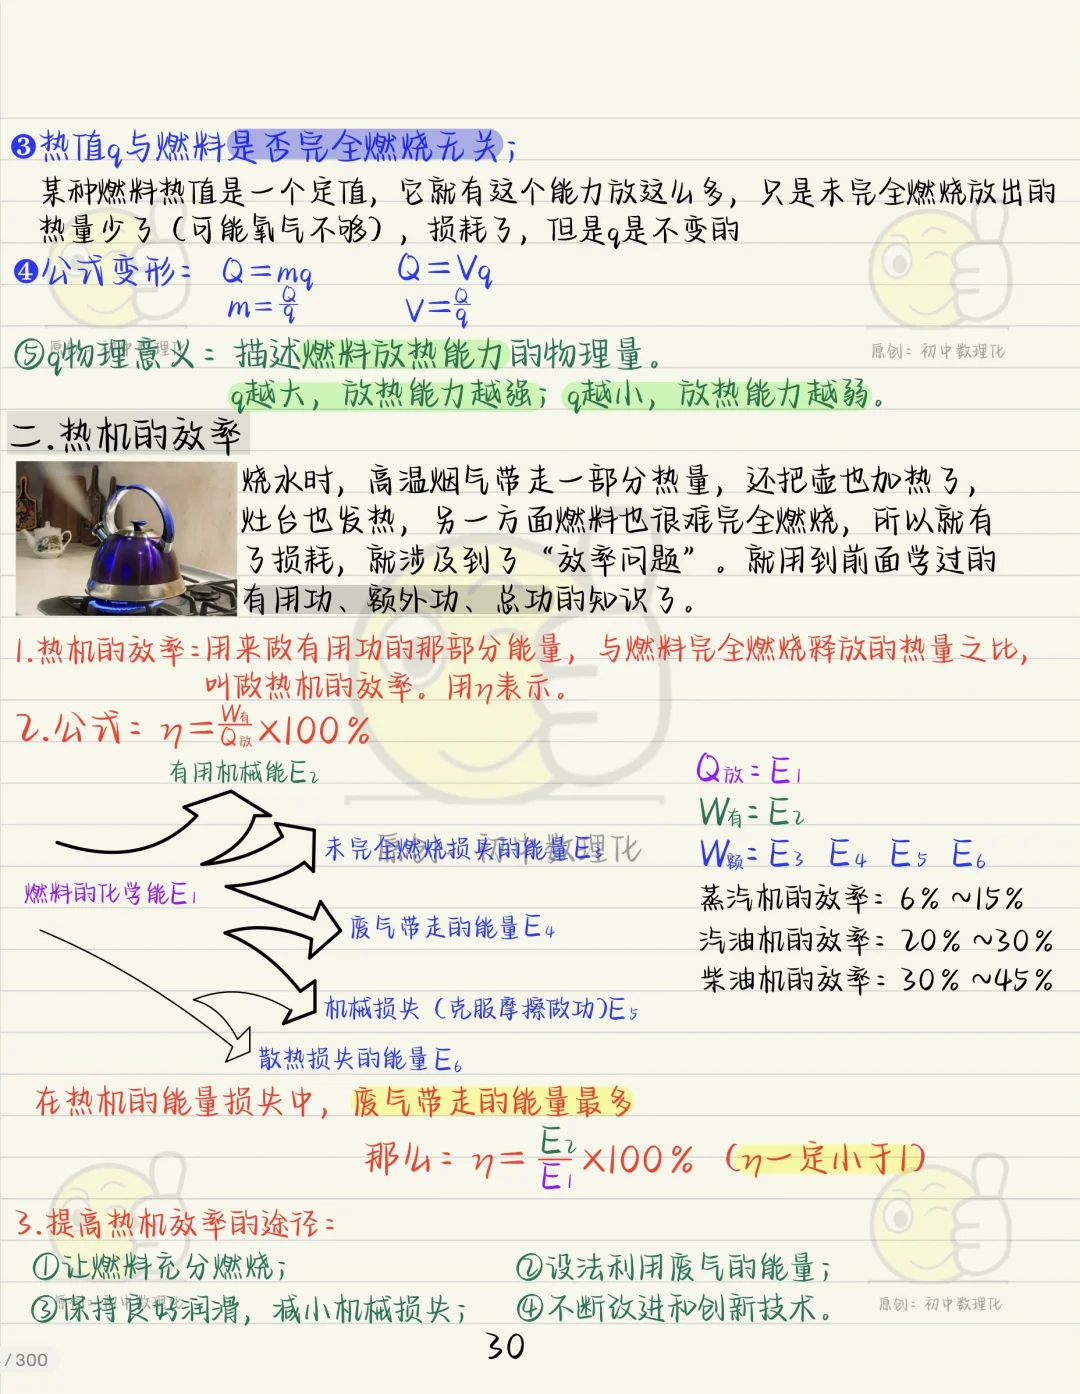 ❸热值q与燃料是否完全燃烧无关；
某种燃料热值是一个定值，它就有这个能力放这么多，只是未完全燃烧放出的
热量少了（可能氧气不够），损耗了，但是q是不变的
❹公式变形： Q=mq Q=Vq
m=Q/q V=Q/q
⑤q物理意义：描述燃料放热能力的物理量。
原创：初中数理化
原创：初中数理化
q越大，放热能力越强；q越小，放热能力越弱。
二.热机的效率
烧水时，高温烟气带走一部分热量，还把壶也加热了，
灶台也发热，另一方面燃料也很难完全燃烧，所以就有
了损耗，就涉及到了“效率问题”。就用到前面学过的
有用功、额外功、总功的知识了。
1.热机的效率：用来做有用功的那部分能量，与燃料完全燃烧释放的热量之比，
叫做热机的效率。用η表示。
2.公式：η=W有/Q放×100%
有用机械能E₂
未完全燃烧损失的能量E₃
原创：初中数理化
燃料的化学能E₁
废气带走的能量E₄
机械损失（克服摩擦做功)E₅
散热损失的能量E₆
Q放=E₁
W有=E₂
W额=E₃ E₄ E₅ E₆
蒸汽机的效率：6%~15%
汽油机的效率：20%~30%
柴油机的效率：30%~45%
在热机的能量损失中，废气带走的能量最多
那么：η=E₂/E₁×100%（η一定小于1）
3.提高热机效率的途径：
①让燃料充分燃烧； ②设法利用废气的能量；
③保持良好润滑，减小机械损失； ④不断改进和创新技术。
原创：初中数理化
原创：初中数理化
30
/ 300